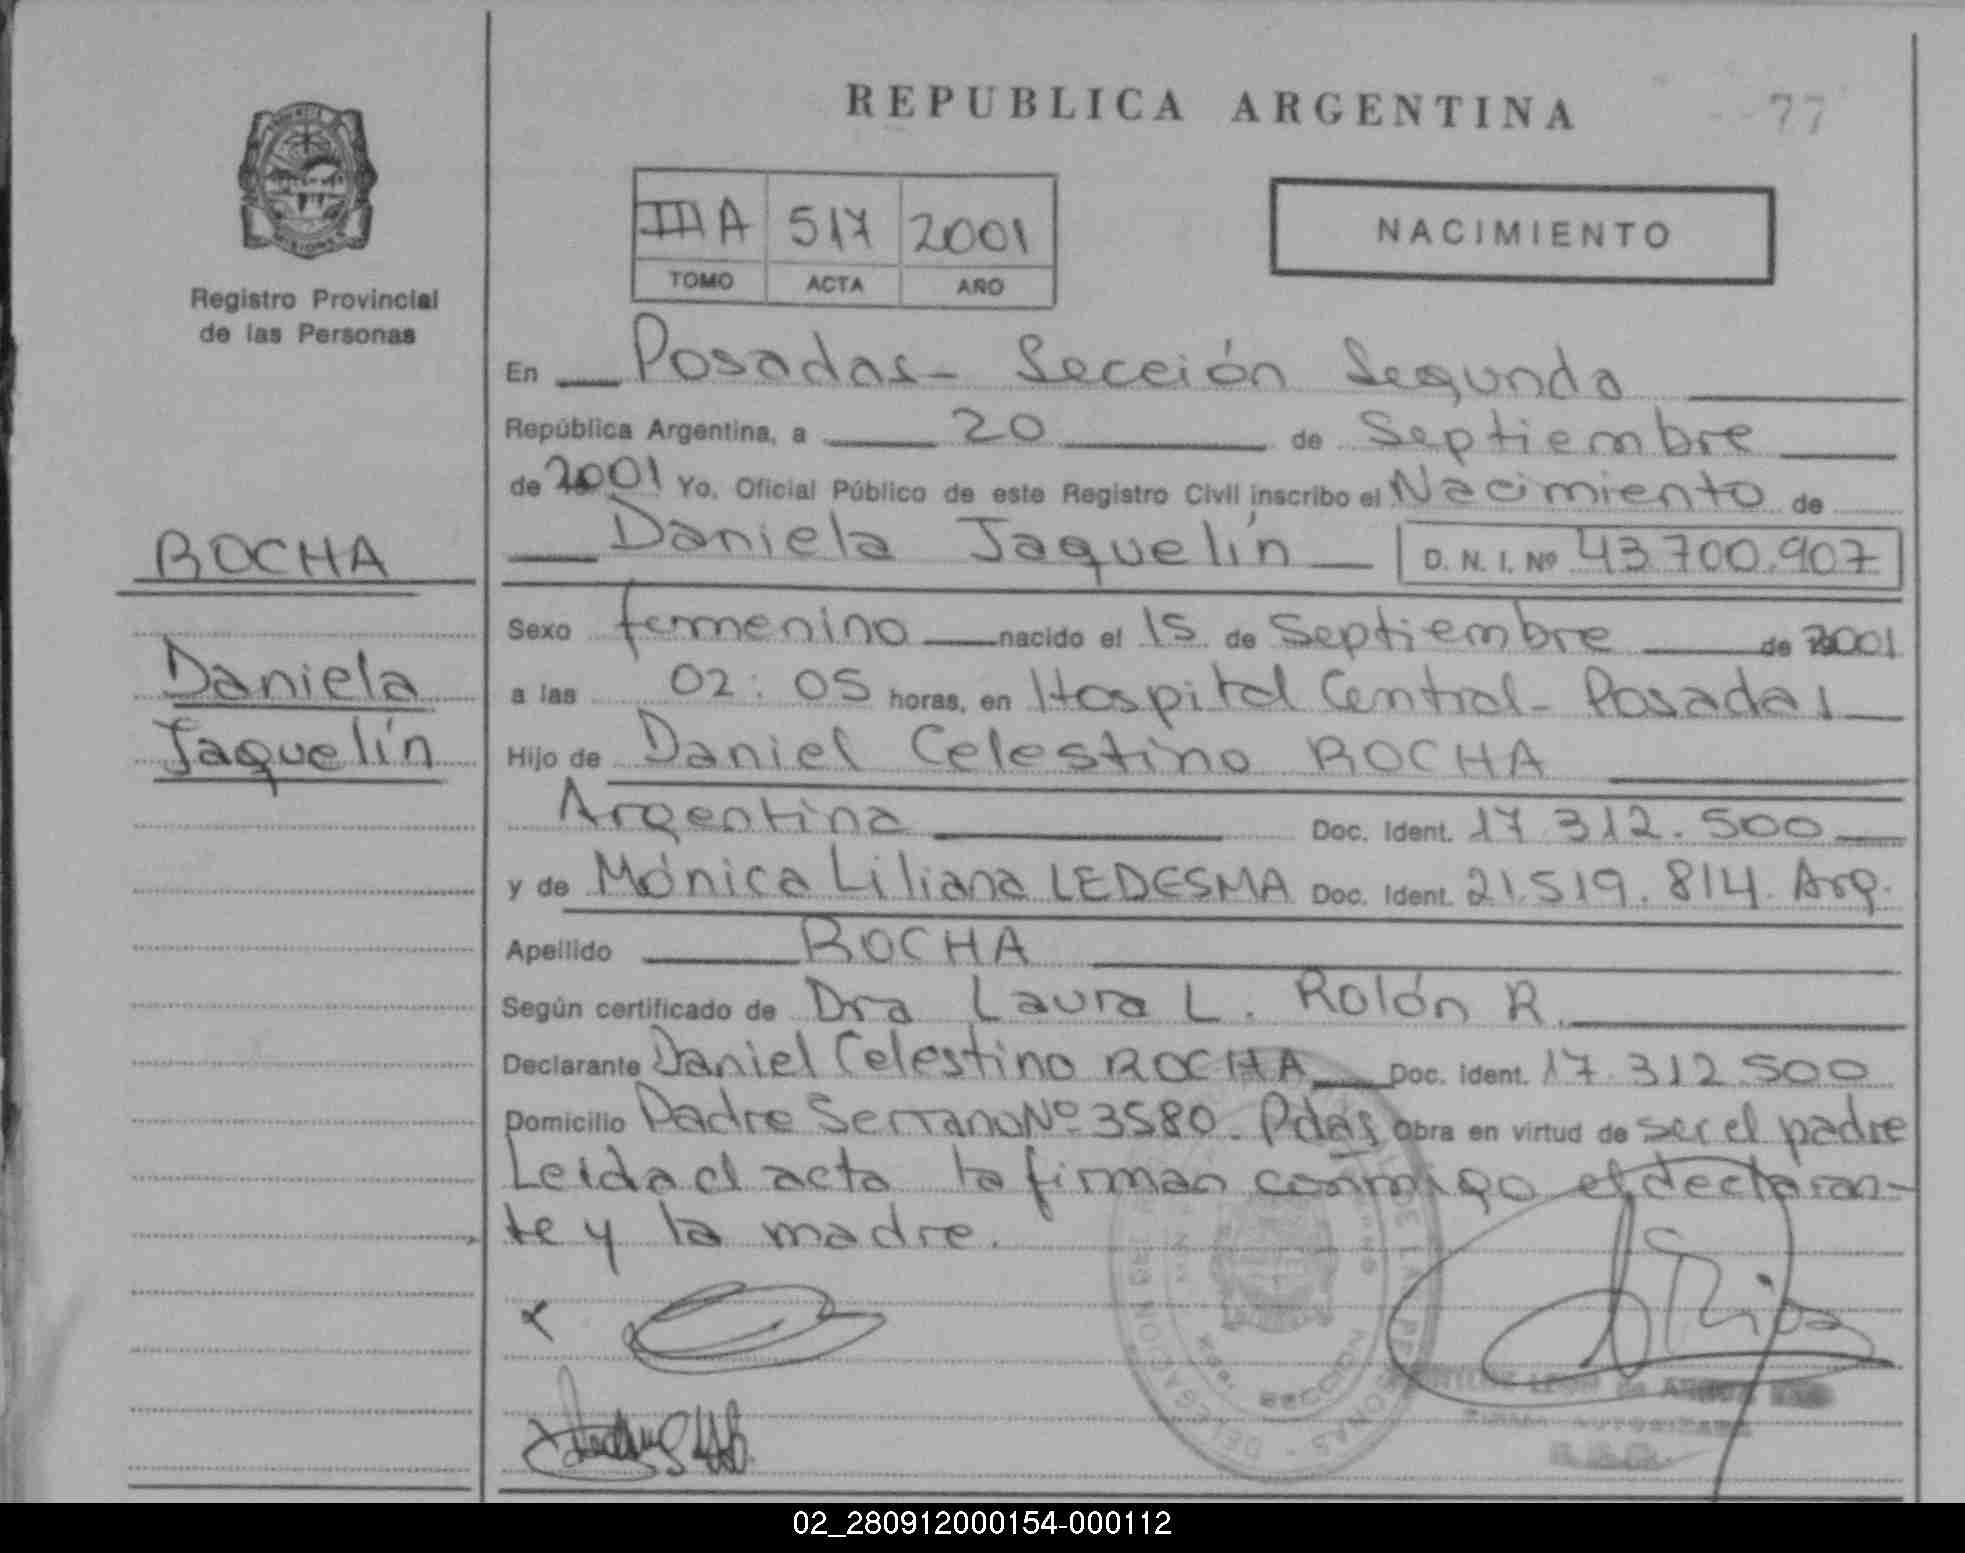 REPUBLICA ARGENTINA
77
Registro Provincial
de las Personas
IIIA 517 2001
TOMO ACTA AÑO
NACIMIENTO
En Posadas - Sección Segunda
República Argentina, a 20 de Septiembre
de 2001 Yo, Oficial Público de este Registro Civil inscribo el Nacimiento de
Daniela Jaquelín D. N. I. Nº 43.700.907
ROCHA
Daniela
Jaquelín
Sexo femenino nacido el 15 de Septiembre de 2001
a las 02:05 horas, en Hospital Central - Posadas
Hijo de Daniel Celestino ROCHA
Argentina Doc. Ident. 17.312.500
y de Mónica Liliana LEDESMA Doc. Ident. 21.519.814. Arg.
Apellido ROCHA
Según certificado de Dra Laura L. Rolón R.
Declarante Daniel Celestino ROCHA Doc. Ident. 17.312.500
Domicilio Padre Serrano Nº 3580. Pdas Obra en virtud de ser el padre
Leida el acta la firman conmigo el declaran-
te y la madre.
SECCION
DELEGACION
LEON de
FIRMA AUTORIZADA
02_280912000154-000112